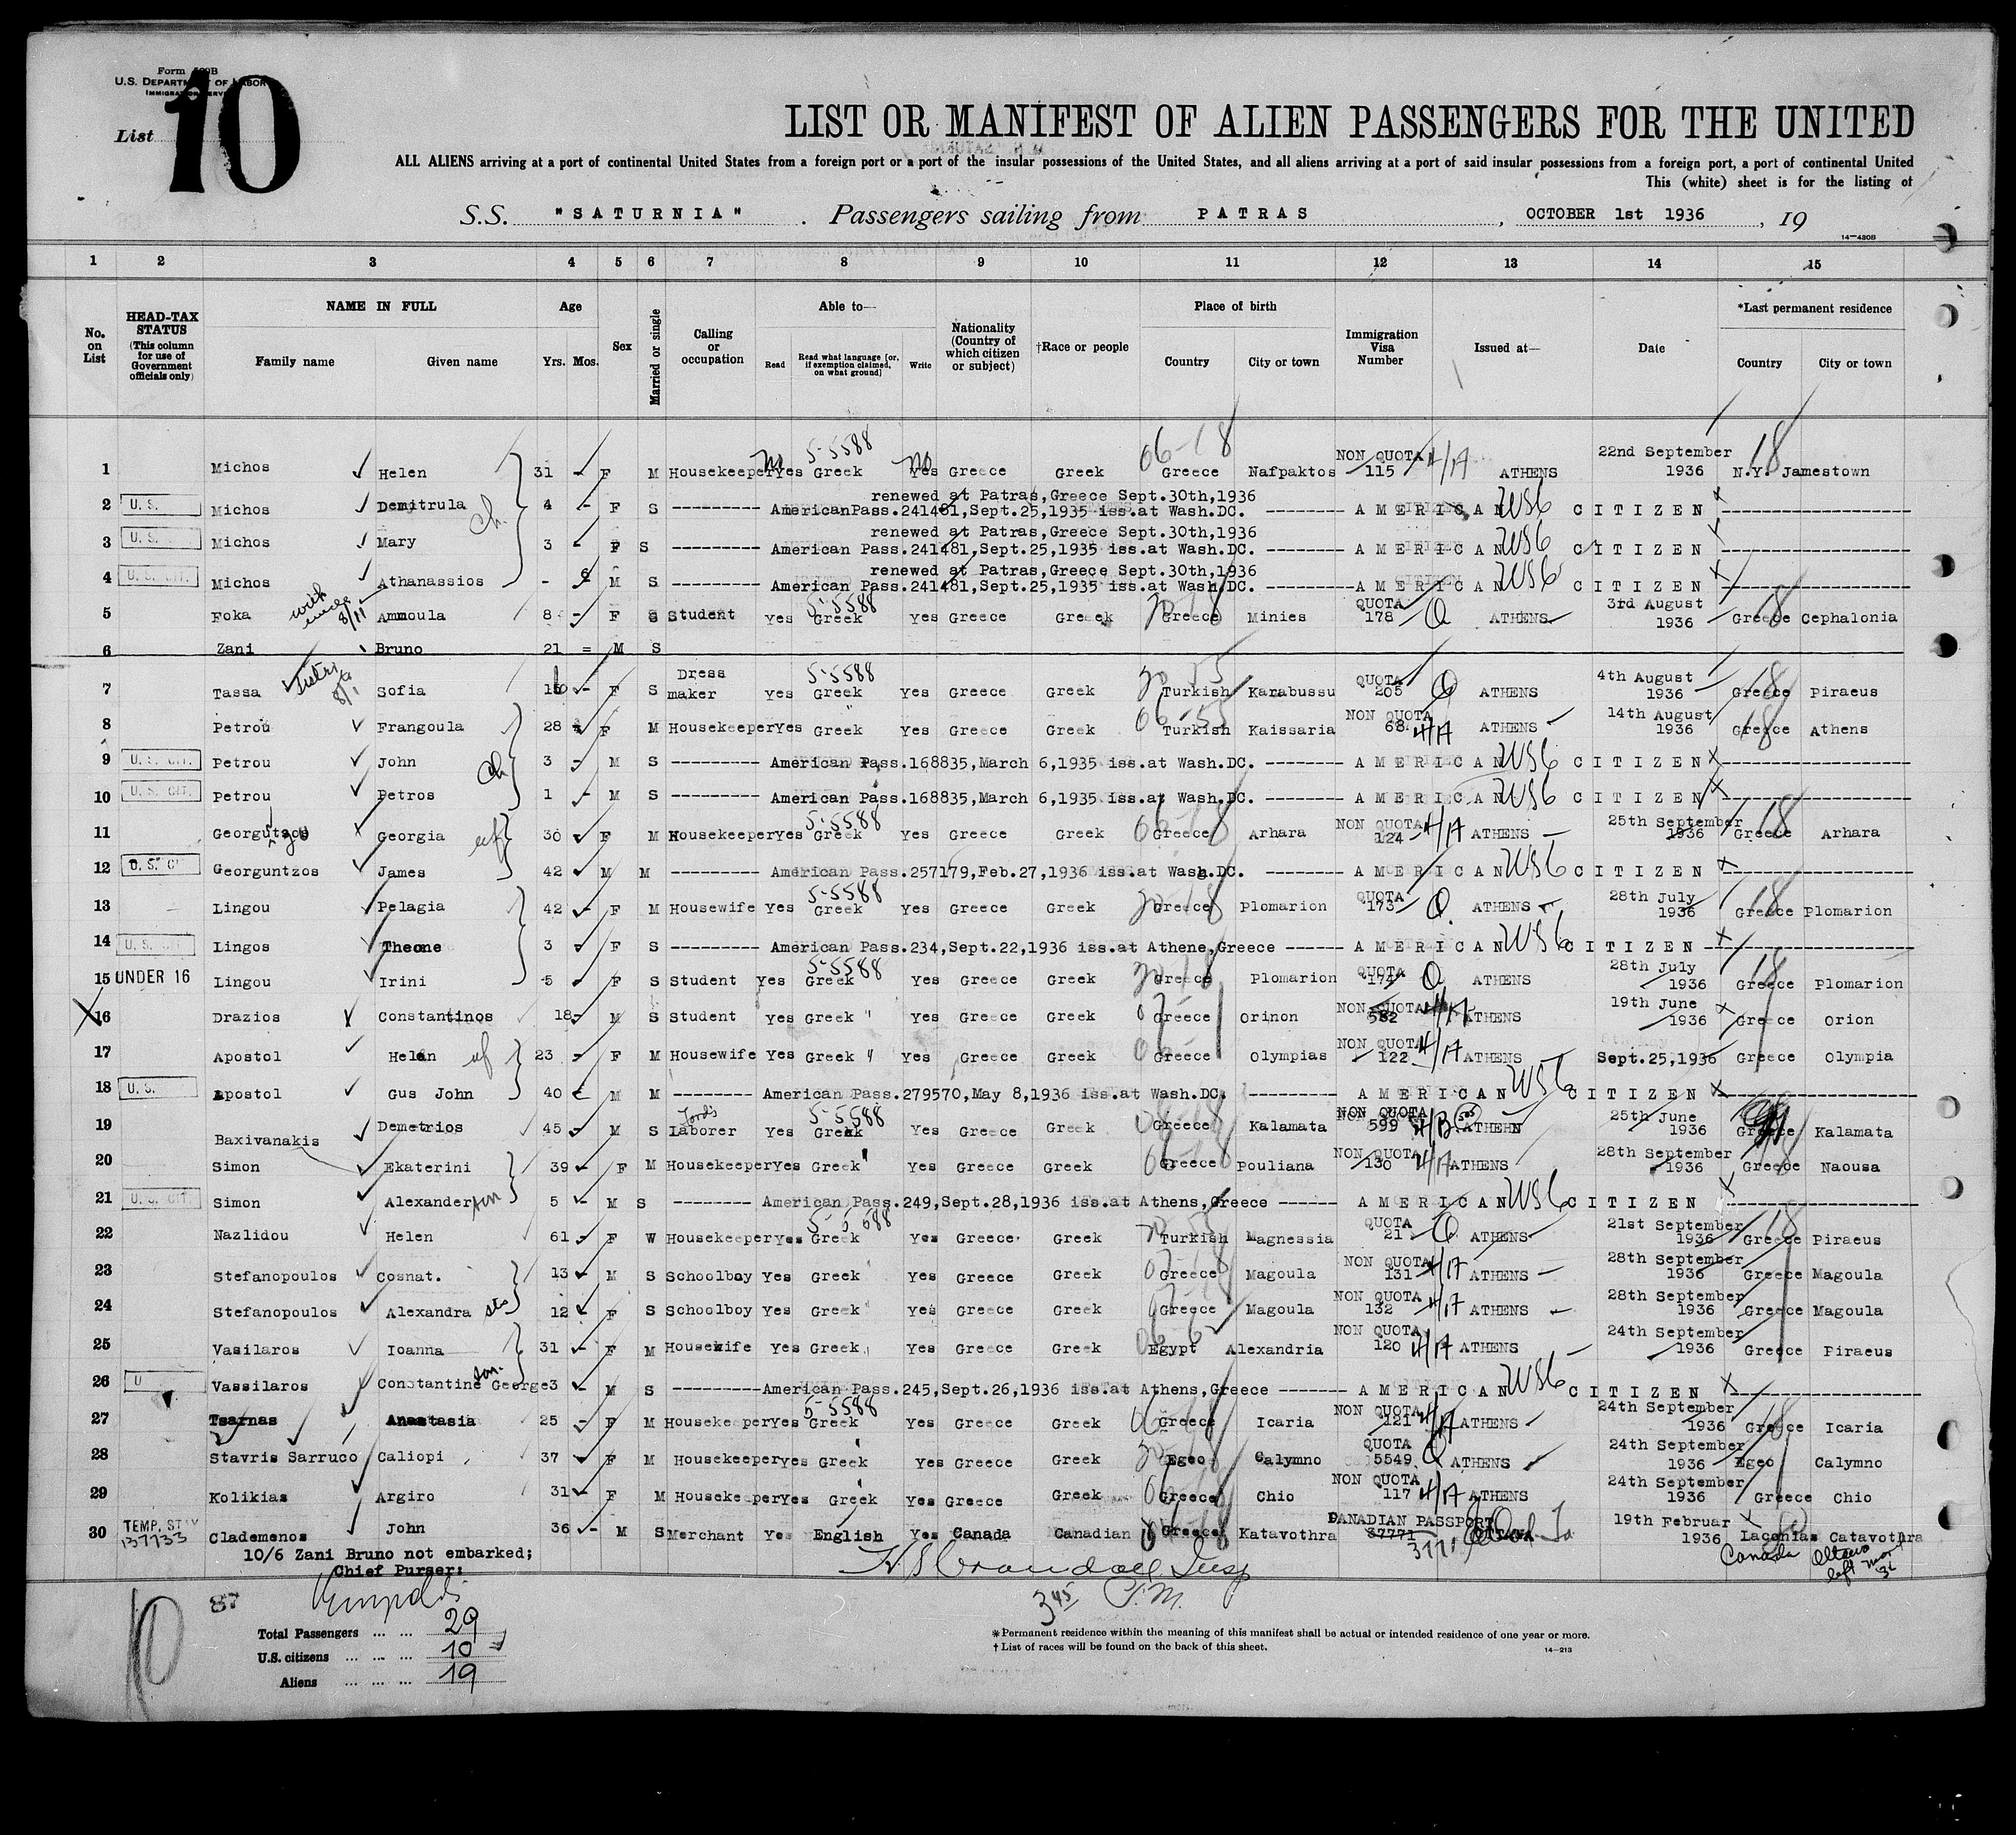 Form 500B
U.S. DEPARTMENT OF LABOR
IMMIGRATION SERVICE
List 10
LIST OR MANIFEST OF ALIEN PASSENGERS FOR THE UNITED
ALL ALIENS arriving at a port of continental United States from a foreign port or a port of the insular possessions of the United States, and all aliens arriving at a port of said insular possessions from a foreign port, a port of continental United
This (white) sheet is for the listing of
S.S. "SATURNIA" . Passengers sailing from PATRAS , OCTOBER 1st 1936 , 19
14—430B
1 2 3 4 5 6 7 8 9 10 11 12 13 14 15
No. on List
HEAD-TAX STATUS (This column for use of Government officials only)
NAME IN FULL Family name Given name
Age Yrs. Mos.
Sex
Married or single
Calling or occupation
Able to— Read Read what language [or, if exemption claimed, on what ground] Write
Nationality (Country of which citizen or subject)
†Race or people
Place of birth Country City or town
Immigration Visa Number
Issued at—
Date
*Last permanent residence Country City or town
1 Michos Helen 31 - F M Housekeeper No Yes 5-5588 Greek No Yes Greece Greek 06-18 Greece Nafpaktos NON QUOTA 115 4/17 ATHENS 22nd September 1936 N.Y. Jamestown 18
2 U.S. Michos Demitrula ch. 4 - F S --------- renewed at Patras,Greece Sept.30th,1936
AmericanPass.241481,Sept.25,1935 iss.at Wash.DC. -------- AMERICAN USC CITIZEN
3 U.S. Michos Mary 3 - F S --------- renewed at Patras,Greece Sept.30th,1936
American Pass.241481,Sept.25,1935 iss.at Wash.DC. -------- AMERICAN USC CITIZEN
4 U.S. CIT. Michos Athanassios - 6 M S --------- renewed at Patras,Greece Sept.30th,1936
American Pass.241481,Sept.25,1935 iss.at Wash.DC. -------- AMERICAN USC CITIZEN
5 Foka with uncle 8/11 Ammoula 8 - F S Student Yes 5-5588 Greek Yes Greece Greek Greece Minies QUOTA 178 Q ATHENS 3rd August 1936 Greece Cephalonia 18
6 Zani Bruno 21 = M S
7 Tassa Sister 8/1 Sofia 16 - F S Dress maker Yes 5-5588 Greek Yes Greece Greek Turkish Karabussu QUOTA 205 Q ATHENS 4th August 1936 Greece Piraeus 18
8 Petrou Frangoula 28 - F M Housekeeper Yes Greek Yes Greece Greek 06-55 Turkish Kaissaria NON QUOTA 68 4/17 ATHENS 14th August 1936 Greece Athens 18
9 U.S. CIT. Petrou John ch 3 - M S --------- American Pass.168835,March 6,1935 iss.at Wash.DC. -------- AMERICAN USC CITIZEN
10 U.S. CIT. Petrou Petros 1 - M S --------- American Pass.168835,March 6,1935 iss.at Wash.DC. -------- AMERICAN USC CITIZEN
11 Georgutzou Georgia 30 F M Housekeeper Yes 5-5588 Greek Yes Greece Greek 06-18 Greece Arhara NON QUOTA 124 4/17 ATHENS 25th September 1936 Greece Arhara 18
12 U.S. CI Georguntzos James 42 M M --------- American Pass.257179,Feb.27,1936 iss.at Wash.DC. -------- AMERICAN USC CITIZEN
13 Lingou Pelagia 42 - F M Housewife Yes 5-5588 Greek Yes Greece Greek Greece Plomarion QUOTA 173 Q ATHENS 28th July 1936 Greece Plomarion 18
14 U.S. CIT Lingos Theone 3 F S --------- American Pass.234,Sept.22,1936 iss.at Athene,Greece ------ AMERICAN USC CITIZEN
15 UNDER 16 Lingou Irini 5 F S Student Yes 5-5588 Greek Yes Greece Greek Greece Plomarion QUOTA 174 Q ATHENS 28th July 1936 Greece Plomarion 18
16 Drazios Constantinos 18 - M S Student Yes Greek " Yes Greece Greek Greece Orinon NON QUOTA 582 4/17 ATHENS 19th June 1936 Greece Orion
17 Apostol Helen 23 - F M Housewife Yes Greek " Yes Greece Greek Greece Olympias NON QUOTA 122 4/17 ATHENS Sept.25,1936 Greece Olympia
18 U.S. Apostol Gus John 40 M M -------- American Pass.279570,May 8,1936 iss.at Wash.DC. --------- AMERICAN USC CITIZEN
19 Baxivanakis Demetrios 45 - M S Laborer Yes 5-5588 Greek Yes Greece Greek Greece Kalamata NON QUOTA 599 4/B ATHEN 25th June 1936 Greece Kalamata
20 Simon Ekaterini 39 - F M Housekeeper Yes Greek " Yes Greece Greek 06-18 Greece Pouliana NON QUOTA 130 4/17 ATHENS 28th September 1936 Greece Naousa
21 U.S. CIT. Simon Alexander son 5 - M S -------- American Pass.249,Sept.28,1936 iss.at Athens,Greece ------ AMERICAN USC CITIZEN
22 Nazlidou Helen 61 - F W Housekeeper Yes 5-5588 Greek Yes Greece Greek Turkish Magnessia QUOTA 21 Q ATHENS 21st September 1936 Greece Piraeus 18
23 Stefanopoulos Cosnat. 13 M S Schoolboy Yes Greek Yes Greece Greek 07-18 Greece Magoula NON QUOTA 131 4/17 ATHENS 28th September 1936 Greece Magoula
24 Stefanopoulos Alexandra sis 12 F S Schoolboy Yes Greek Yes Greece Greek Greece Magoula NON QUOTA 132 4/17 ATHENS 28th September 1936 Greece Magoula
25 Vasilaros Ioanna 31 - F M Housewife Yes Greek Yes Greece Greek Egypt Alexandria NON QUOTA 120 4/17 ATHENS 24th September 1936 Greece Piraeus
26 U Vassilaros Constantine George son 3 - M S --------- American Pass.245,Sept.26,1936 iss.at Athens,Greece ------- AMERICAN USC CITIZEN
27 Tsarnas Anastasia 25 - F M Housekeeper Yes 5-5588 Greek Yes Greece Greek 06-18 Greece Icaria NON QUOTA 121 4/17 ATHENS 24th September 1936 Greece Icaria 18
28 Stavris Sarruco Caliopi 37 F M Housekeeper Yes Greek Yes Greece Greek Egeo Calymno QUOTA 5549 Q ATHENS 24th September 1936 Egeo Calymno
29 Kolikias Argiro 31 F M Housekeeper Yes Greek Yes Greece Greek 06-18 Greece Chio NON QUOTA 117 4/17 ATHENS 24th September 1936 Greece Chio
30 TEMP. STAY 137733 Clademenos John 36 - M S Merchant Yes English Yes Canada Canadian Greece Katavothra CANADIAN PASSPORT 37771 OTTAWA 19th Februar 1936 Laconias Catavothra
Canada Ottawa left
10/6 Zani Bruno not embarked;
Chief Purser:
H S Crandall Insp
3 45 P.M.
87
10
Total Passengers ... ... 29
U.S. citizens ... ... ... 10
Aliens ... ... ... 19
*Permanent residence within the meaning of this manifest shall be actual or intended residence of one year or more.
† List of races will be found on the back of this sheet.
14—213